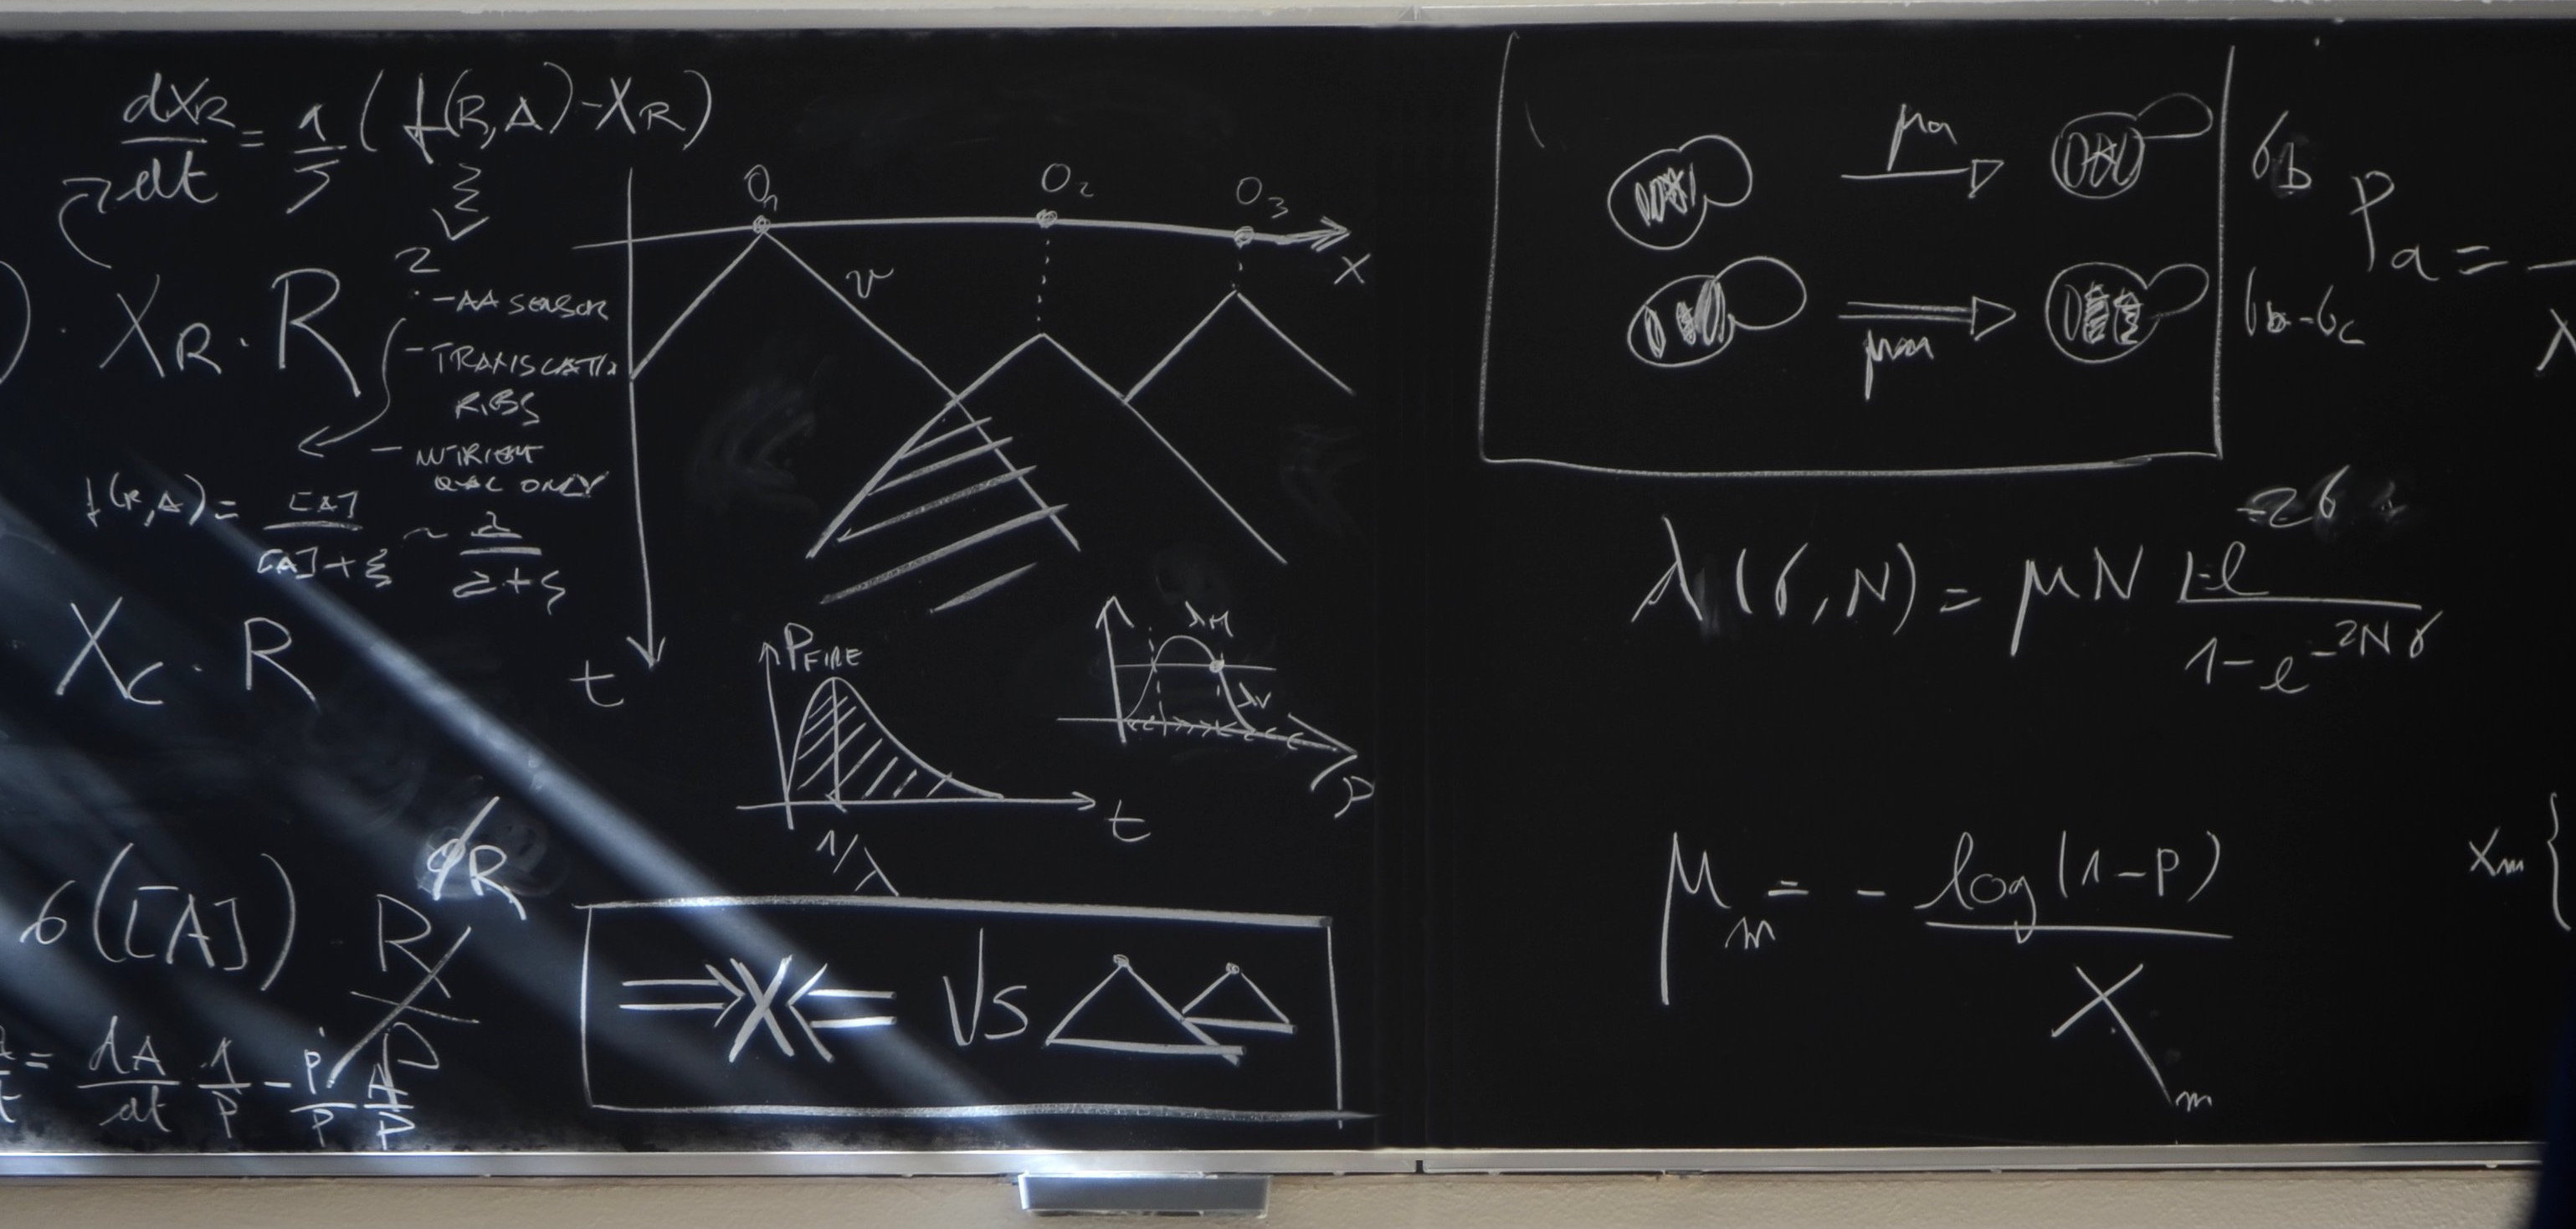 dX_R/dt = 1/τ ( f(R,A) - X_R )
) · X_R · R
2
- AA SENSOR
- TRANSLATIN
RIBS
- NUTRIENT
QUAL ONLY
f(R,A) = [A]/([A]+ξ) ~ 2/(2+ξ)
X_C · R
σ([A]) R
ϕR
= dA/dt 1/P - Ṗ/P A/P
O₁ O₂ O₃
x
v
t
P_FIRE
1/λ
t
λ_H
λ_V
P
⇒X⇐ Vs
μa
σb
μm
σb-σc
Pa =
λ
λ(σ,N) = μN (1-e^-2σ)/(1-e^-2Nσ)
μ_m = - log(1-P)/X_m
X_m {